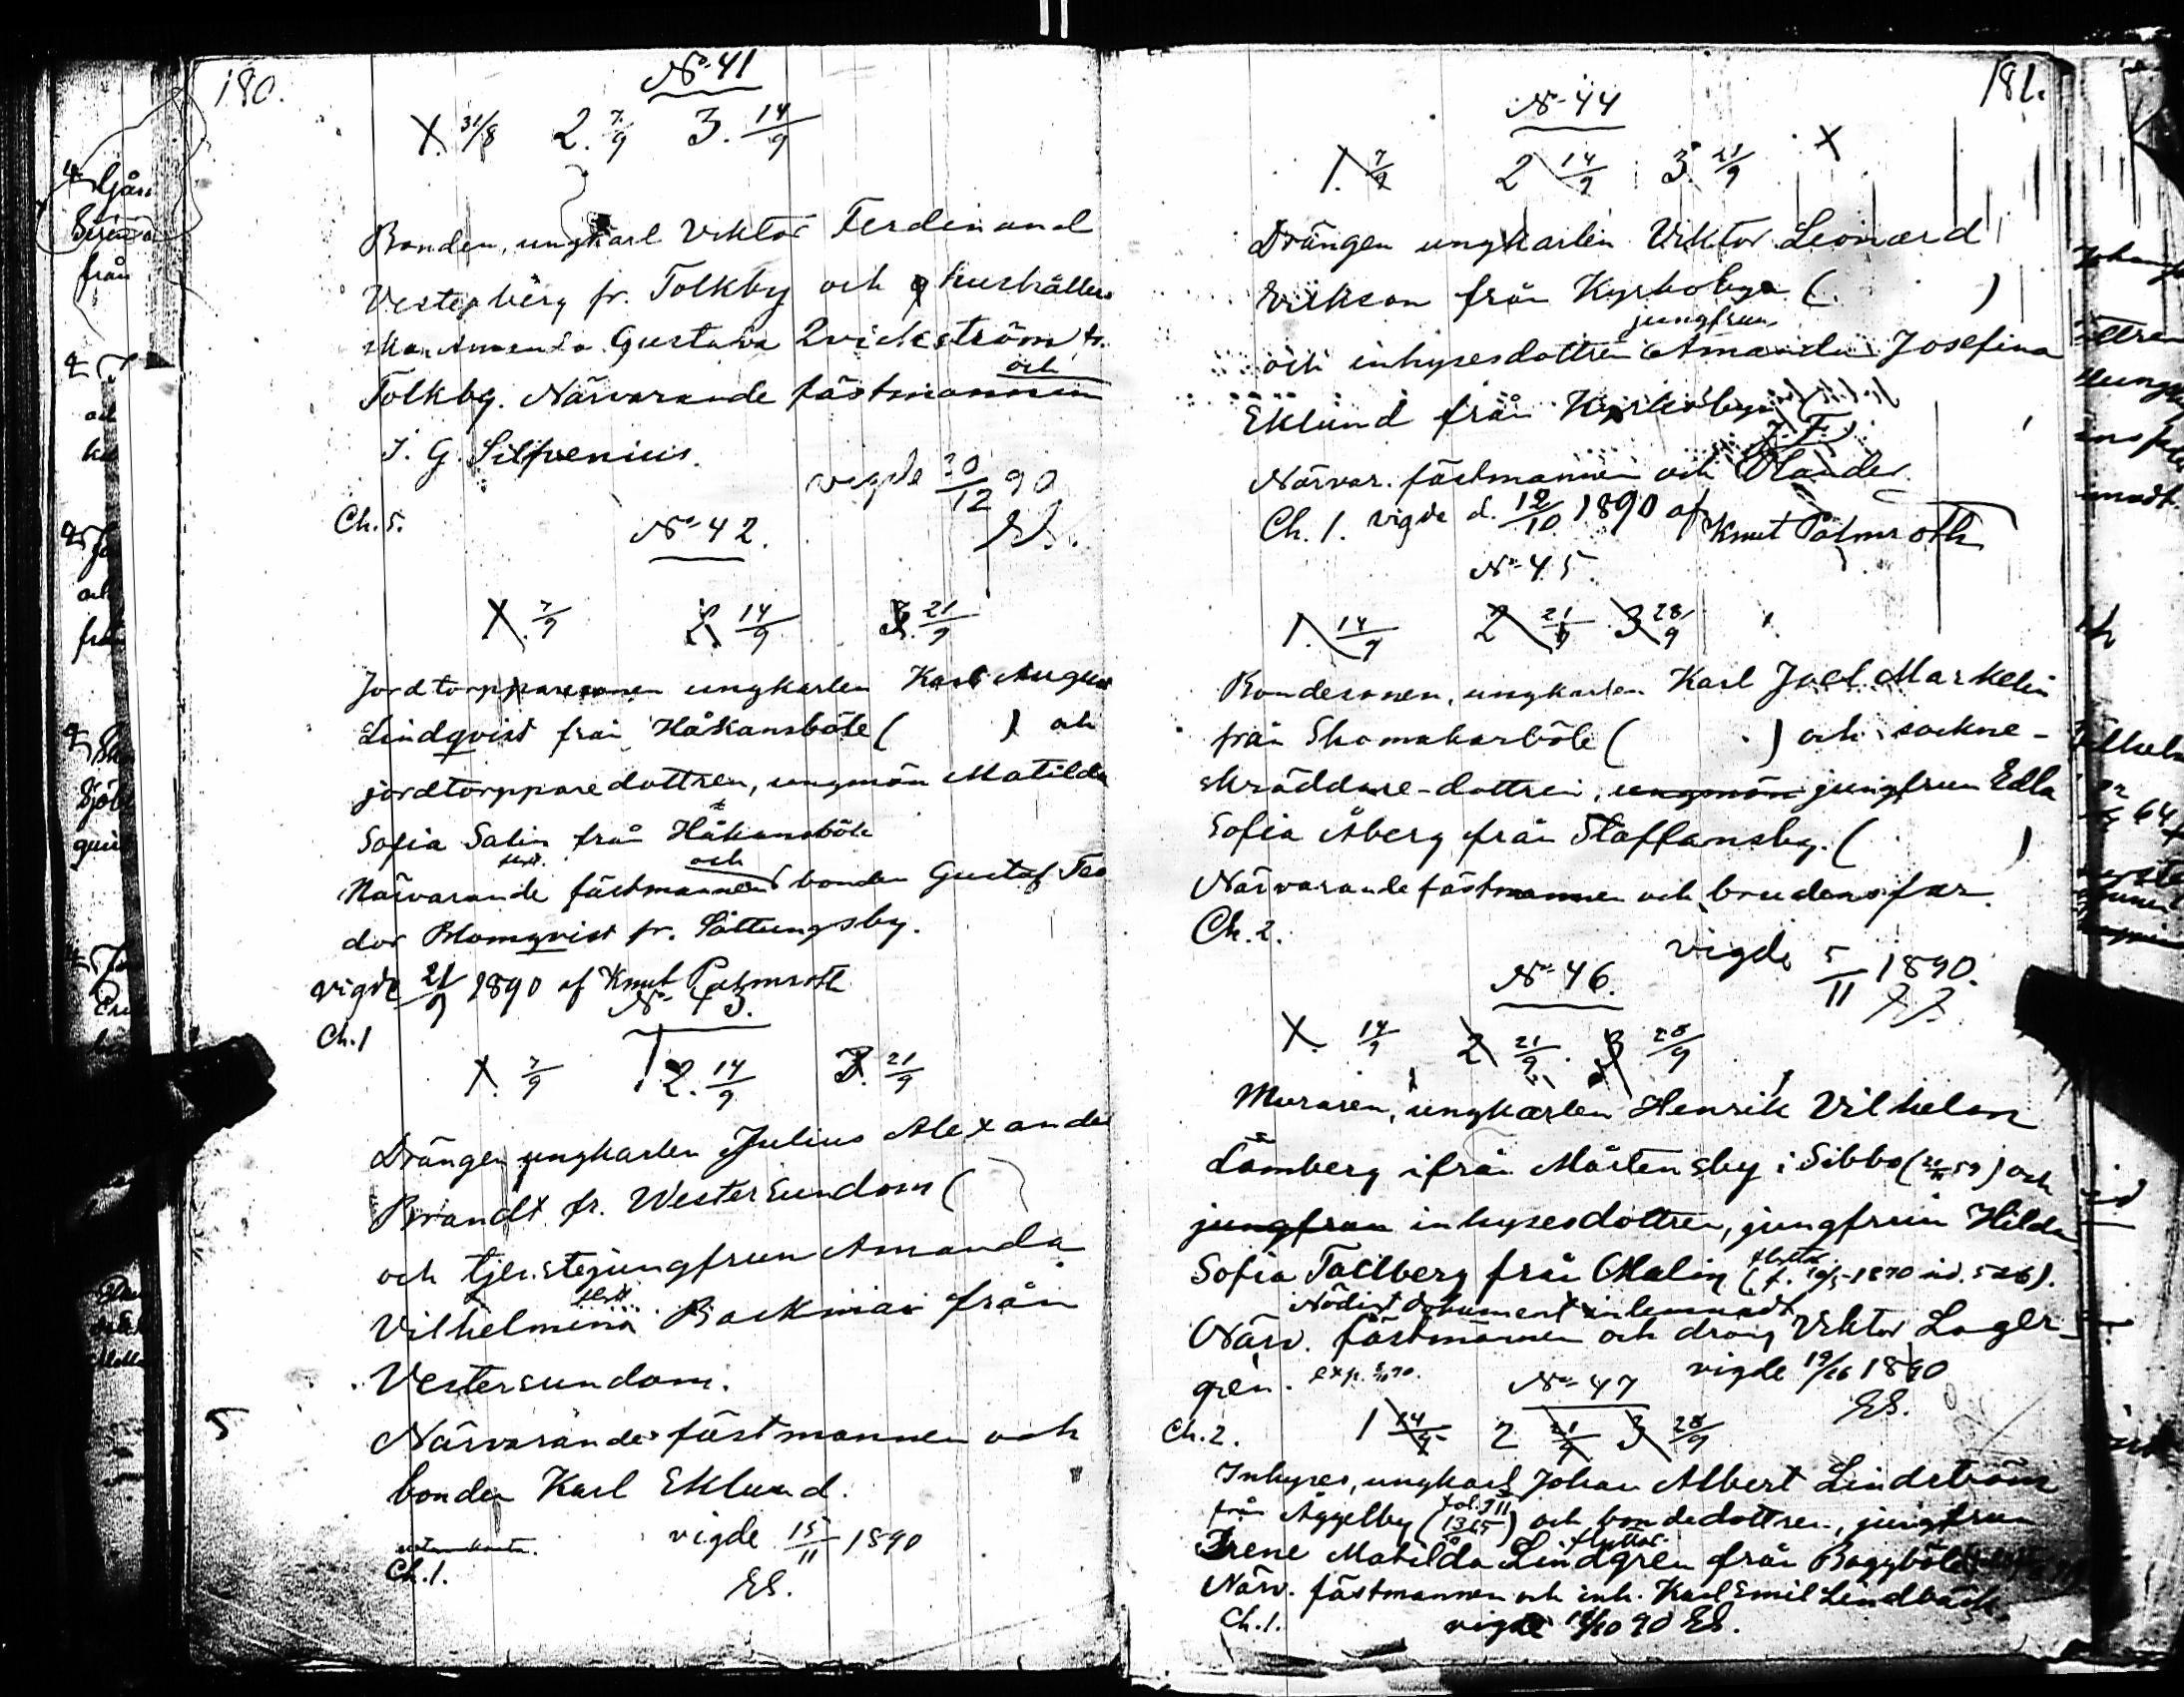 180.
No 41
1. 31/8 2. 7/9 3. 14/9
Bonden, ungkarl Viktor Ferdinand
Vesterberg fr. Tolkby och hushållers
skan Amanda Gustava Qvickström fr.
och
Tolkby. Närvarande fästmannen
J. G. Silfvenius.
vigde 30/12 90
Ch. 5.
No 42.
1. 7/9 2. 14/9 3. 21/9
Jordtorpparesonen ungkarlen Karl August
Lindqvist från Håkansböle ( ) och
jordtorpparedottren, ungmön Matilda
Sofia Salin från Håkansböle
och
Närvarande fästmannen bonden Gustaf Teo
dor Blomqvist fr. Sottungsby.
vigde 21/9 1890 af Knut Palmroth
No 43.
Ch. 1
1. 7/9 2. 14/9 3. 21/9
Drängen ungkarlen Julius Alexander
Brandt fr. Westersundom (
och tjenstejungfrun Amanda
Vilhelmina Backman från
Vestersundom.
5
Närvarande fästmannen och
bonden Karl Eklund.
vigde 15/11 1890
Ch. 1.
ES.
181.
No 44
1. 7/9 2 14/9 3. 21/9 X
Drängen ungkarlen Viktor Leonard
Erikson från Kyrkoby ( )
jungfrun
och inhysesdottren Amanda Josefina
Eklund från Kyrkoby
J. F.
Närvar. fästmannen och Olander
Ch. 1. vigde d. 12/10 1890 af Knut Palmroth
No 45.
1. 14/9 2 21/9 3 28/9
Bondesonen, ungkarlen Karl Joel Markelin
från Skomakarböle ( ) och sockne-
skräddare-dottren, ungmön jungfrun Edla
Sofia Åberg från Staffansby. ( )
Närvarande fästmannen och brudens far.
Ch. 2.
vigde 5/11 1890.
No 46.
1. 14/9 2 21/9 3 28/9
Muraren, ungkarlen Henrik Vilhelm
Lömberg ifrån Mårtensby i Sibbo ( 59) och
jungfrun inhysesdottren, jungfrun Hilda
Sofia Tallberg från Malm
Nödigt dokument inlemnadt
Närv. fästmannen och dräng Viktor Lager-
gren.
vigde 19/10 1890
ES.
No 47
Ch. 2.
1 14/9 2 21/9 3 28/9
Inhyses, ungkarl Johan Albert Lindström
från Åggelby ( ) och bondedottren, jungfrun
flyttat
Irene Matilda Lindgren från Baggböle
Närv. fästmannen och inh. Karl Emil Lindbäck.
Ch. 1.
vigde 12/10 90 ES.